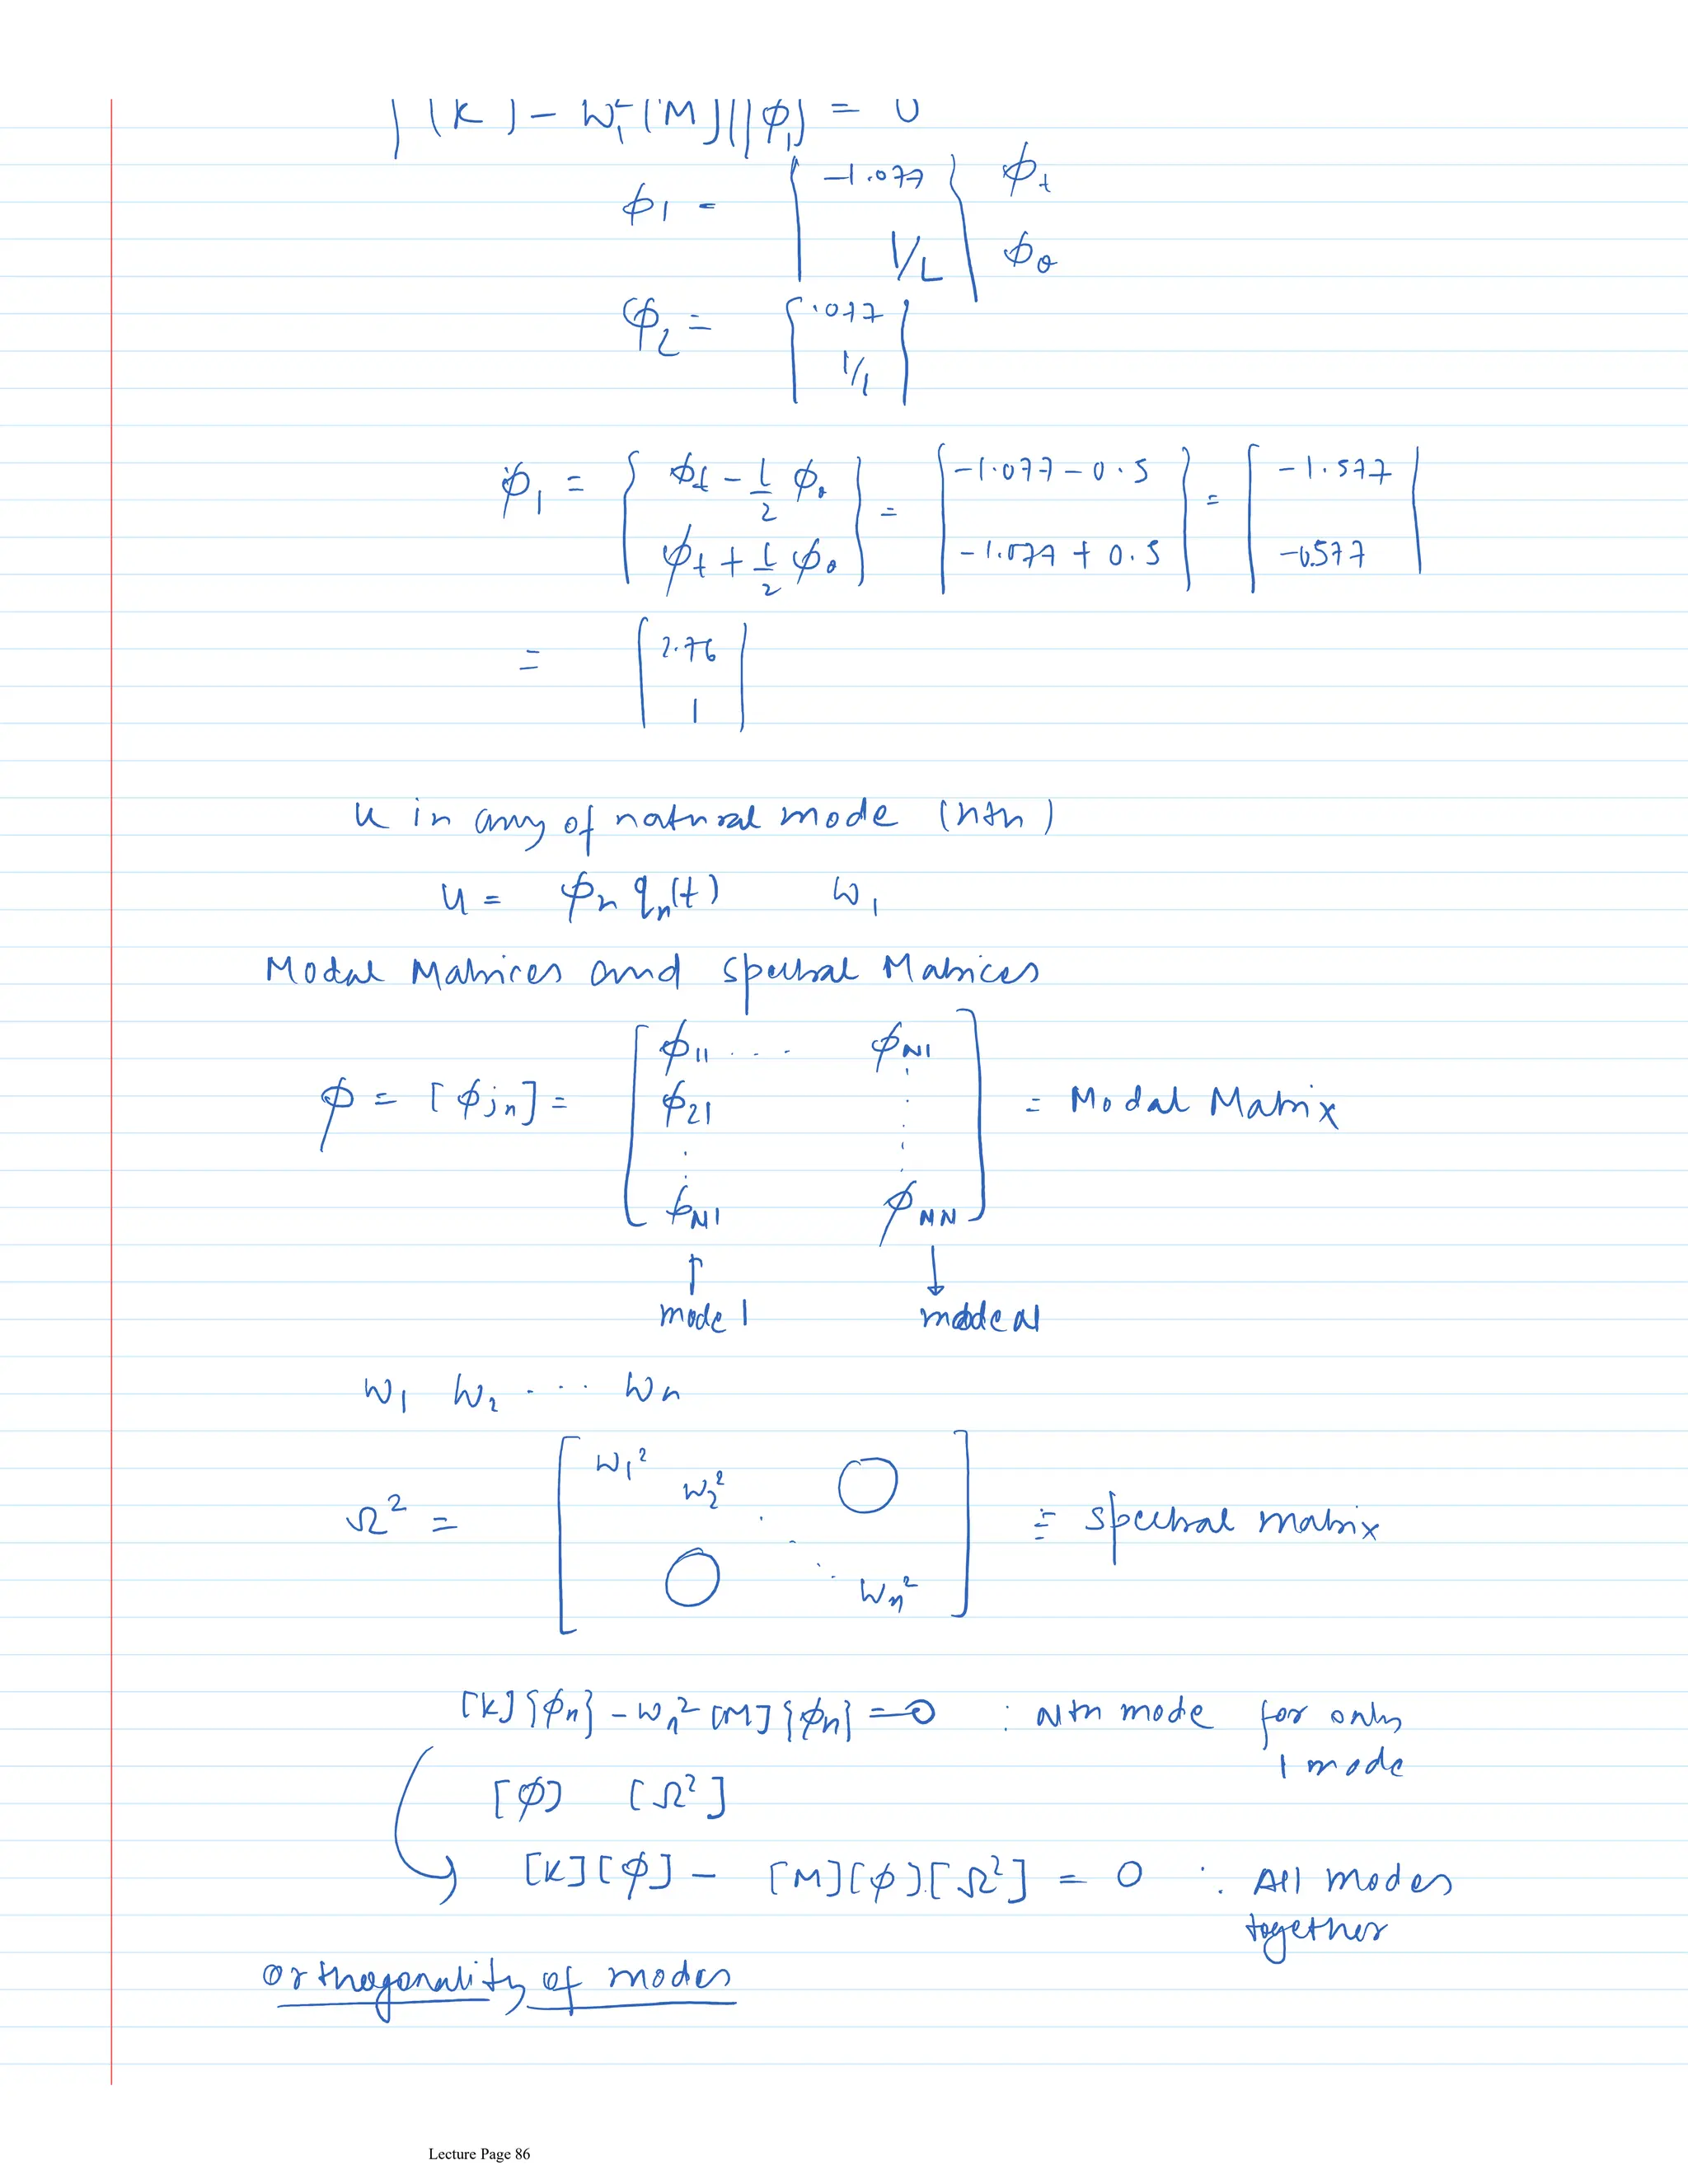 [K] - ω₁² [M] {ϕ₁} = 0
ϕ1 = { -1.077 } ϕt
1/L ϕθ
ϕ₂ = { .077
1/1 }
ϕ₁ = { ϕt - L/2 ϕθ } = { -1.077 - 0.5 } = { -1.577 }
{ ϕt + L/2 ϕθ } { -1.077 + 0.5 } { -0.577 }
= { 2.76
1 }
u in any of natural mode (nth)
u = ϕn qn(t) ω₁
Modal Matrices and spectral Matrices
ϕ = [ϕjn] = [ ϕ11 ... ϕN1 ] = Modal Matrix
ϕ21 .
. .
ϕN1 ϕNN
↑ ↓
mode 1 mode N
ω₁ ω₂ ... ωn
Ω² = [ ω₁² ω₂² O ] = spectral matrix
O ωn²
[K]{ϕn} - ωn² [M]{ϕn} = 0 : Nth mode for only
1 mode
[ϕ] [Ω²]
[K][ϕ] - [M][ϕ][Ω²] = 0 : All modes
together
orthogonality of modes
Lecture Page 86